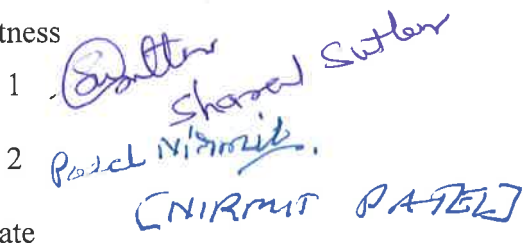 tness
1
Sharad Sutler
2 Patel Nirmit.
[NIRMIT PATEL]
ate